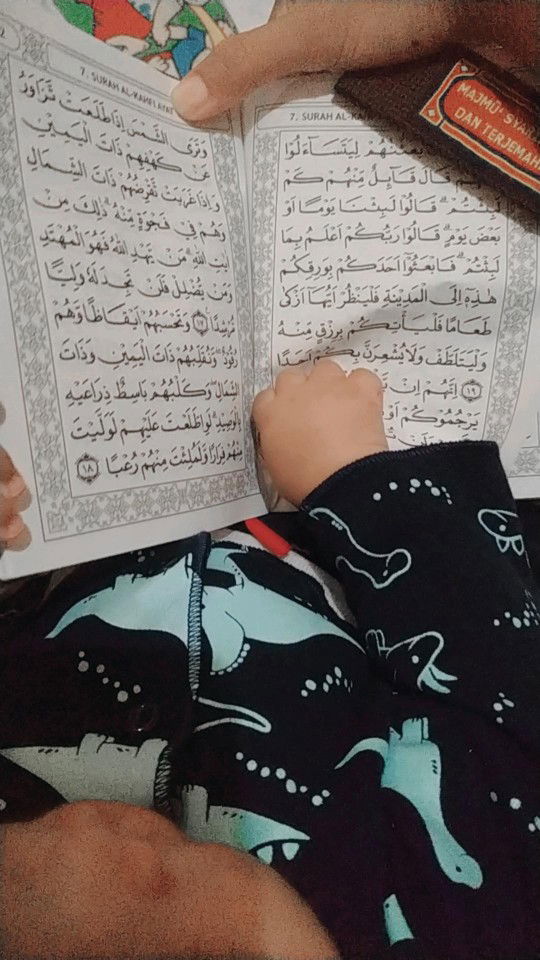 7. SURAH AL-KAHFI AYAT
وَتَرَى الشَّمْسَ اِذَا طَلَعَتْ تَّزَاوَرُ
عَنْ كَهْفِهِمْ ذَاتَ الْيَمِيْنِ
وَاِذَا غَرَبَتْ تَّقْرِضُهُمْ ذَاتَ الشِّمَالِ
وَهُمْ فِيْ فَجْوَةٍ مِّنْهُ ۗ ذٰلِكَ مِنْ
اٰيٰتِ اللّٰهِ ۗ مَنْ يَّهْدِ اللّٰهُ فَهُوَ الْمُهْتَدِ
وَمَنْ يُّضْلِلْ فَلَنْ تَجِدَ لَهٗ وَلِيًّا
مُّرْشِدًا ﴿١٧﴾ وَتَحْسَبُهُمْ اَيْقَاظًا وَّهُمْ
رُقُوْدٌ ۖ وَّنُقَلِّبُهُمْ ذَاتَ الْيَمِيْنِ وَذَاتَ
الشِّمَالِ ۖ وَكَلْبُهُمْ بَاسِطٌ ذِرَاعَيْهِ
بِالْوَصِيْدِ ۗ لَوِ اطَّلَعْتَ عَلَيْهِمْ لَوَلَّيْتَ
مِنْهُمْ فِرَارًا وَّلَمُلِئْتَ مِنْهُمْ رُعْبًا ﴿١٨﴾
7. SURAH AL-KA
بَعَثْنٰهُمْ لِيَتَسَاۤءَلُوْا
قَالَ قَاۤىِٕلٌ مِّنْهُمْ كَمْ
لَبِثْتُمْ ۗ قَالُوْا لَبِثْنَا يَوْمًا اَوْ
بَعْضَ يَوْمٍ ۗ قَالُوْا رَبُّكُمْ اَعْلَمُ بِمَا
لَبِثْتُمْ ۗ فَابْعَثُوْٓا اَحَدَكُمْ بِوَرِقِكُمْ
هٰذِهٖٓ اِلَى الْمَدِيْنَةِ فَلْيَنْظُرْ اَيُّهَآ اَزْكٰى
طَعَامًا فَلْيَأْتِكُمْ بِرِزْقٍ مِّنْهُ
وَلْيَتَلَطَّفْ وَلَا يُشْعِرَنَّ بِكُمْ اَحَدًا
﴿١٩﴾ اِنَّهُمْ اِنْ
يَرْجُمُوْكُمْ اَوْ
MAJMŪ' SYA
DAN TERJEMAH